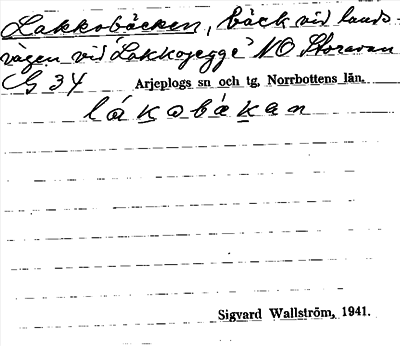 Lakkobäcken, bäck vid lands-
vägen vid Lakkojegge NO Storavan
G 34 Arjeplogs sn och tg, Norrbottens län.
lákabákan
Sigvard Wallström, 1941.